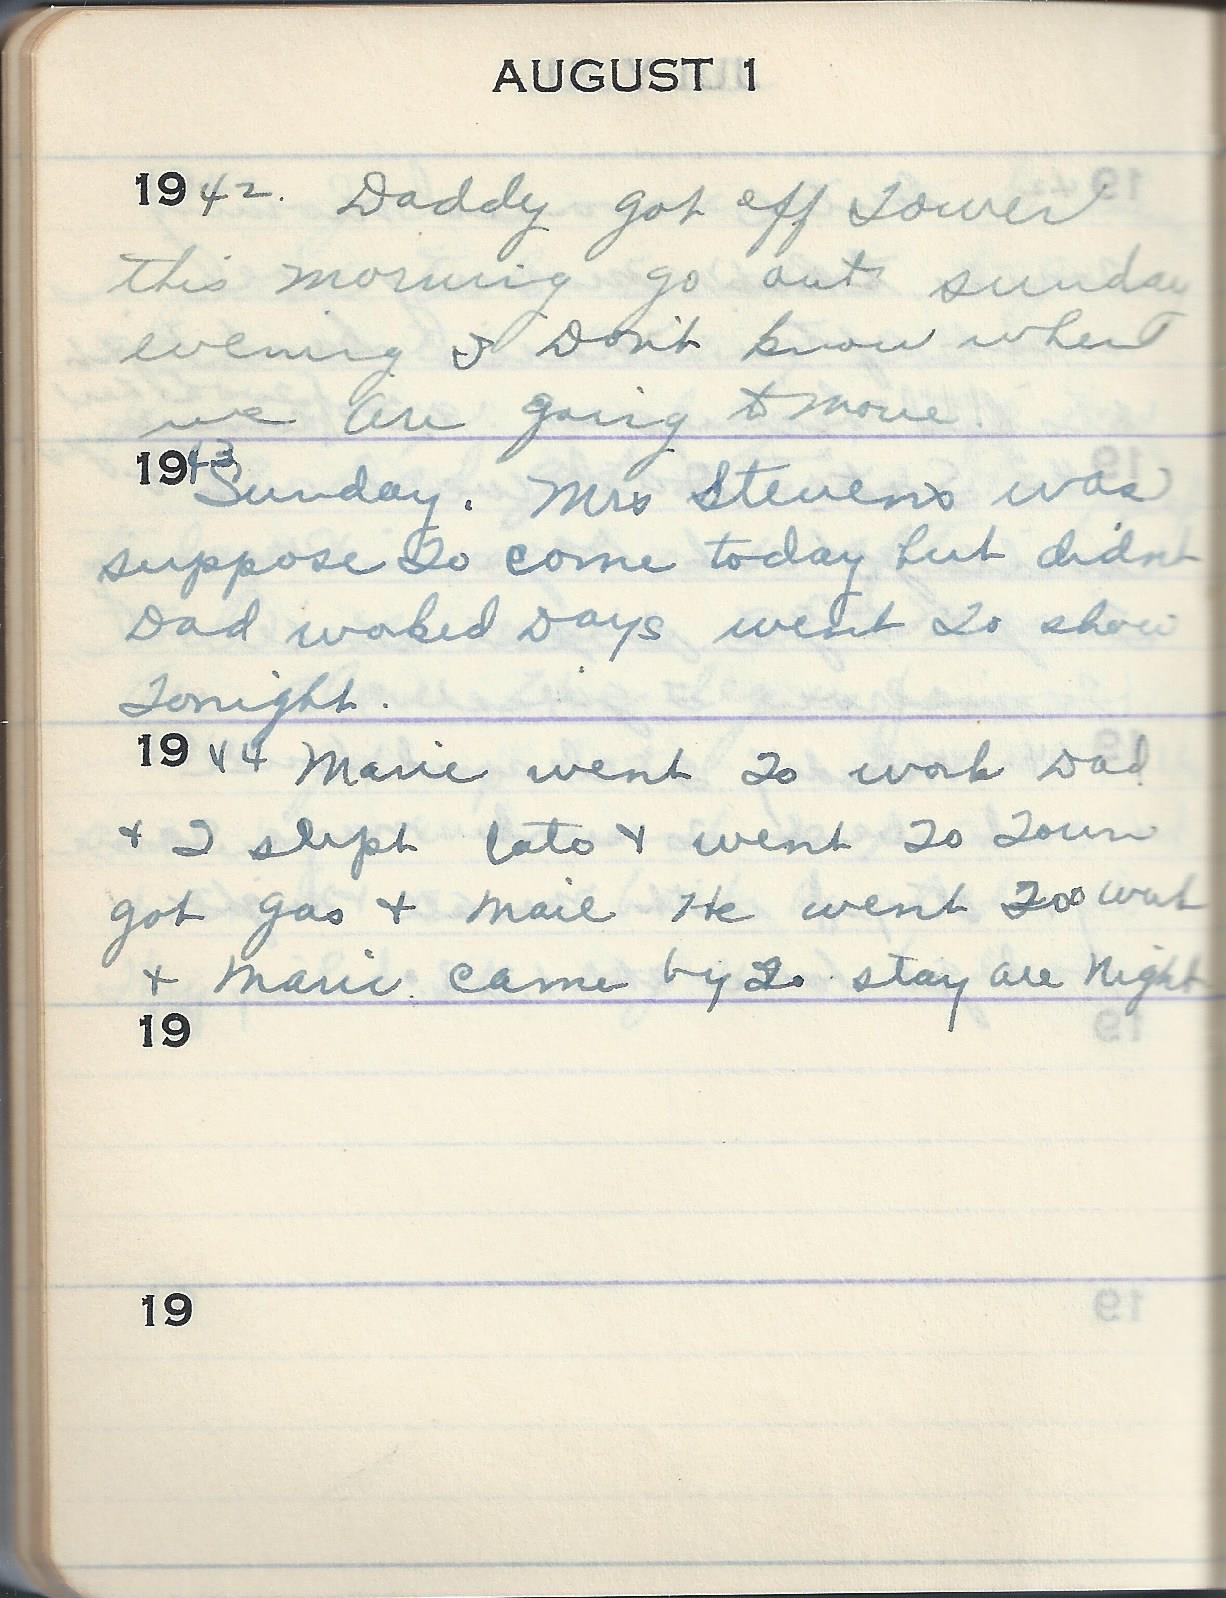 AUGUST 1
1942. Daddy got off Tower
this morning go out sunday
evening I Don't know when
we are going to move.
1943 Sunday. Mrs Stevens was
suppose To come today but didnt
Dad woked Days went To show
Tonight.
1944 Marie went To work Dad
+ I slept late + went To Town
got gas + mail He went To work
+ Marie came by To stay all Night
19
19